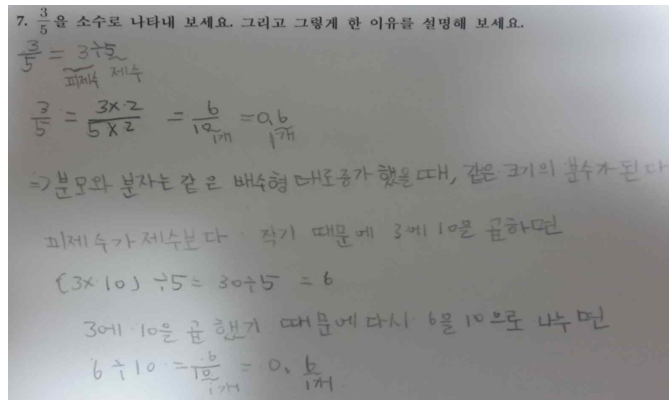 7. 3/5을 소수로 나타내 보세요. 그리고 그렇게 한 이유를 설명해 보세요.
3/5 = 3÷5
피제수 제수
3/5 = 3×2/5×2 = 6/10 = 0.6
1개 1개
⇒ 분모와 분자는 같은 배수형태로 증가 했을 때, 같은 크기의 분수가 된다
피제수가 제수보다 작기 때문에 3에 10을 곱하면
(3×10)÷5 = 30÷5 = 6
3에 10을 곱했기 때문에 다시 6을 10으로 나누면
6÷10 = 6/10 = 0.6
1개 1개